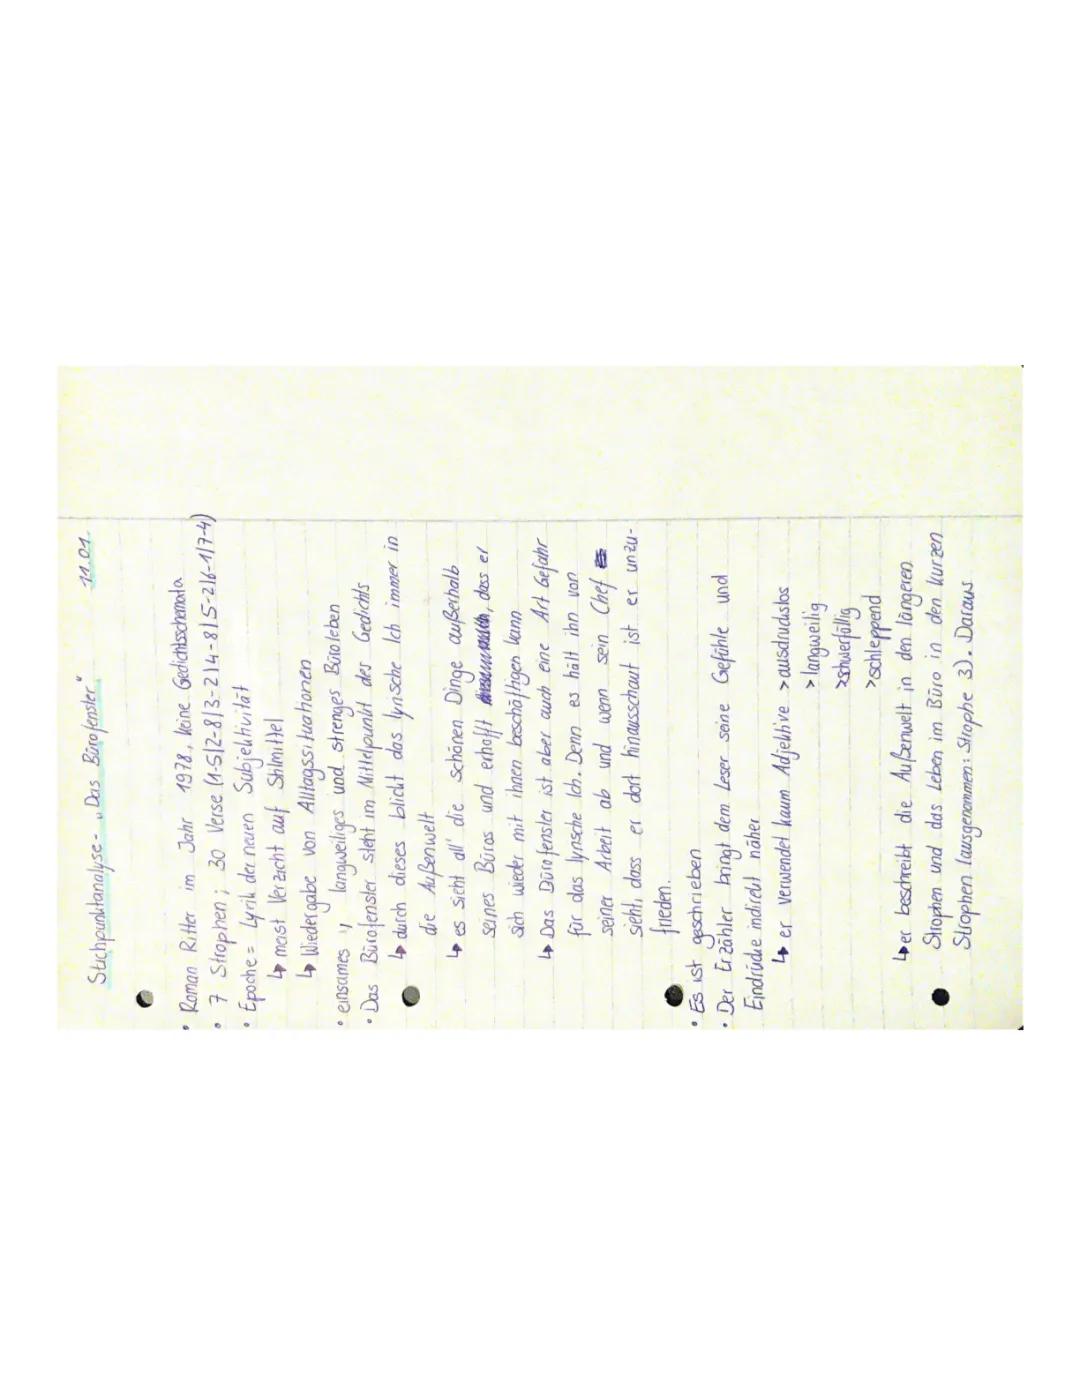 Stichpunktanalyse - „Das Bürofenster" 11.01.
• Roman Ritter im Jahr 1978, keine Gedichtsschemata
• 7 Strophen; 30 Verse (1-5|2-8|3-2|4-8|5-2|6-1|7-4)
• Epoche = Lyrik der neuen Subjektivität
↳ meist Verzicht auf Stilmittel
↳ Wiedergabe von Alltagssituationen
• einsames, langweiliges und strenges Büroleben
• Das Bürofenster steht im Mittelpunkt des Gedichts
↳ durch dieses blickt das lyrische Ich immer in
die Außenwelt
↳ es sieht all' die schönen Dinge außerhalb
seines Büros und erhofft, dass er
sich wieder mit ihnen beschäftigen kann
↳ Das Bürofenster ist aber auch eine Art Gefahr
für das lyrische Ich. Denn es hält ihn von
seiner Arbeit ab und wenn sein Chef
sieht, dass er dort hinausschaut ist er unzu-
frieden.
• Es ist geschrieben
• Der Erzähler bringt dem Leser seine Gefühle und
Eindrücke indirekt näher
↳ er verwendet kaum Adjektive > ausdruckslos
> langweilig
> schwerfällig
> schleppend
↳ er beschreibt die Außenwelt in den längeren
Strophen und das Leben im Büro in den kurzen
Strophen (ausgenommen: Strophe 3). Daraus